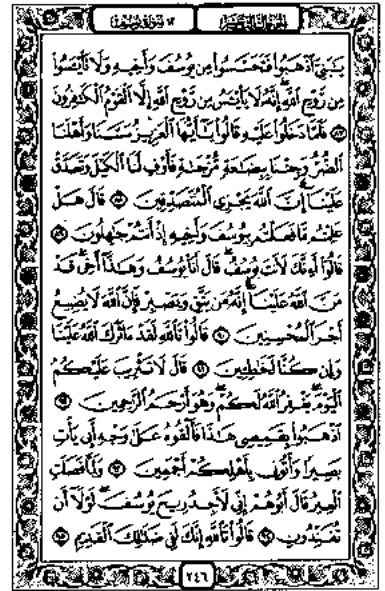 الجزء الثالث عشر ١٢ سورة يوسف
يَٰبَنِيَّ ٱذۡهَبُواْ فَتَحَسَّسُواْ مِن يُوسُفَ وَأَخِيهِ وَلَا تَاْيۡـَٔسُواْ
مِن رَّوۡحِ ٱللَّهِۖ إِنَّهُۥ لَا يَاْيۡـَٔسُ مِن رَّوۡحِ ٱللَّهِ إِلَّا ٱلۡقَوۡمُ ٱلۡكَٰفِرُونَ
٨٧ فَلَمَّا دَخَلُواْ عَلَيۡهِ قَالُواْ يَٰٓأَيُّهَا ٱلۡعَزِيزُ مَسَّنَا وَأَهۡلَنَا
ٱلضُّرُّ وَجِئۡنَا بِبِضَٰعَةٖ مُّزۡجَىٰةٖ فَأَوۡفِ لَنَا ٱلۡكَيۡلَ وَتَصَدَّقۡ
عَلَيۡنَآۖ إِنَّ ٱللَّهَ يَجۡزِي ٱلۡمُتَصَدِّقِينَ ٨٨ قَالَ هَلۡ
عَلِمۡتُم مَّا فَعَلۡتُم بِيُوسُفَ وَأَخِيهِ إِذۡ أَنتُمۡ جَٰهِلُونَ ٨٩
قَالُوٓاْ أَءِنَّكَ لَأَنتَ يُوسُفُۖ قَالَ أَنَا۠ يُوسُفُ وَهَٰذَآ أَخِيۖ قَدۡ
مَنَّ ٱللَّهُ عَلَيۡنَآۖ إِنَّهُۥ مَن يَتَّقِ وَيَصۡبِرۡ فَإِنَّ ٱللَّهَ لَا يُضِيعُ
أَجۡرَ ٱلۡمُحۡسِنِينَ ٩٠ قَالُواْ تَٱللَّهِ لَقَدۡ ءَاثَرَكَ ٱللَّهُ عَلَيۡنَا
وَإِن كُنَّا لَخَٰطِـِٔينَ ٩١ قَالَ لَا تَثۡرِيبَ عَلَيۡكُمُ
ٱلۡيَوۡمَۖ يَغۡفِرُ ٱللَّهُ لَكُمۡۖ وَهُوَ أَرۡحَمُ ٱلرَّٰحِمِينَ ٩٢
ٱذۡهَبُواْ بِقَمِيصِي هَٰذَا فَأَلۡقُوهُ عَلَىٰ وَجۡهِ أَبِي يَأۡتِ
بَصِيرٗا وَأۡتُونِي بِأَهۡلِكُمۡ أَجۡمَعِينَ ٩٣ وَلَمَّا فَصَلَتِ
ٱلۡعِيرُ قَالَ أَبُوهُمۡ إِنِّي لَأَجِدُ رِيحَ يُوسُفَۖ لَوۡلَآ أَن
تُفَنِّدُونِ ٩٤ قَالُواْ تَٱللَّهِ إِنَّكَ لَفِي ضَلَٰلِكَ ٱلۡقَدِيمِ ٩٥
٢٤٦